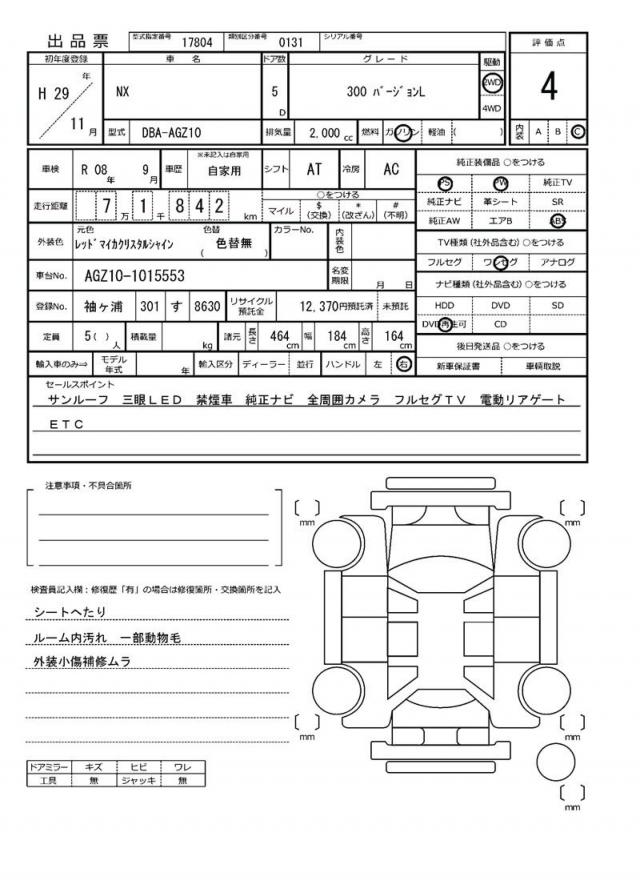 出品票 型式指定番号 17804 類別区分番号 0131 シリアル番号
評価点
4
内装 A B C
初年度登録 車名 ドア数 グレード 駆動
H 29 年 11 月
NX 5 D 300 バージョンL 2WD 4WD
型式 DBA-AGZ10 排気量 2,000 cc 燃料 ガソリン 軽油 ( )
車検 R 08 年 9 月 車歴 ※未記入は自家用 自家用 シフト AT 冷房 AC
走行距離 7 万 1 千 8 4 2 km ○をつける マイル $ (交換) * (改ざん) # (不明)
外装色 元色 レッドマイカクリスタルシャイン 色替 ( 色替無 ) カラーNo. 内装色
車台No. AGZ10-1015553 名変期限 月 日
登録No. 袖ヶ浦 301 す 8630 リサイクル預託金 12,370円預託済 未預託
定員 5( ) 人 積載量 kg 諸元 長さ 464 cm 幅 184 cm 高さ 164 cm
輸入車のみ⇒ モデル年式 年 輸入区分 ディーラー 並行 ハンドル 左 右
純正装備品 ○をつける
PS PW 純正TV
純正ナビ 革シート SR
純正AW エアB ABS
TV種類(社外品含む) ○をつける
フルセグ ワンセグ アナログ
ナビ種類(社外品含む) ○をつける
HDD DVD SD
DVD再生可 CD
後日発送品 ○をつける
新車保証書 車輌取説
セールスポイント
サンルーフ 三眼LED 禁煙車 純正ナビ 全周囲カメラ フルセグTV 電動リアゲート
ETC
注意事項・不具合箇所
検査員記入欄：修復歴「有」の場合は修復箇所・交換箇所を記入
シートへたり
ルーム内汚れ 一部動物毛
外装小傷補修ムラ
ドアミラー キズ ヒビ ワレ
工具 無 ジャッキ 無
[ ] mm
[ ] mm
[ ] mm
[ ] mm
[ ] mm